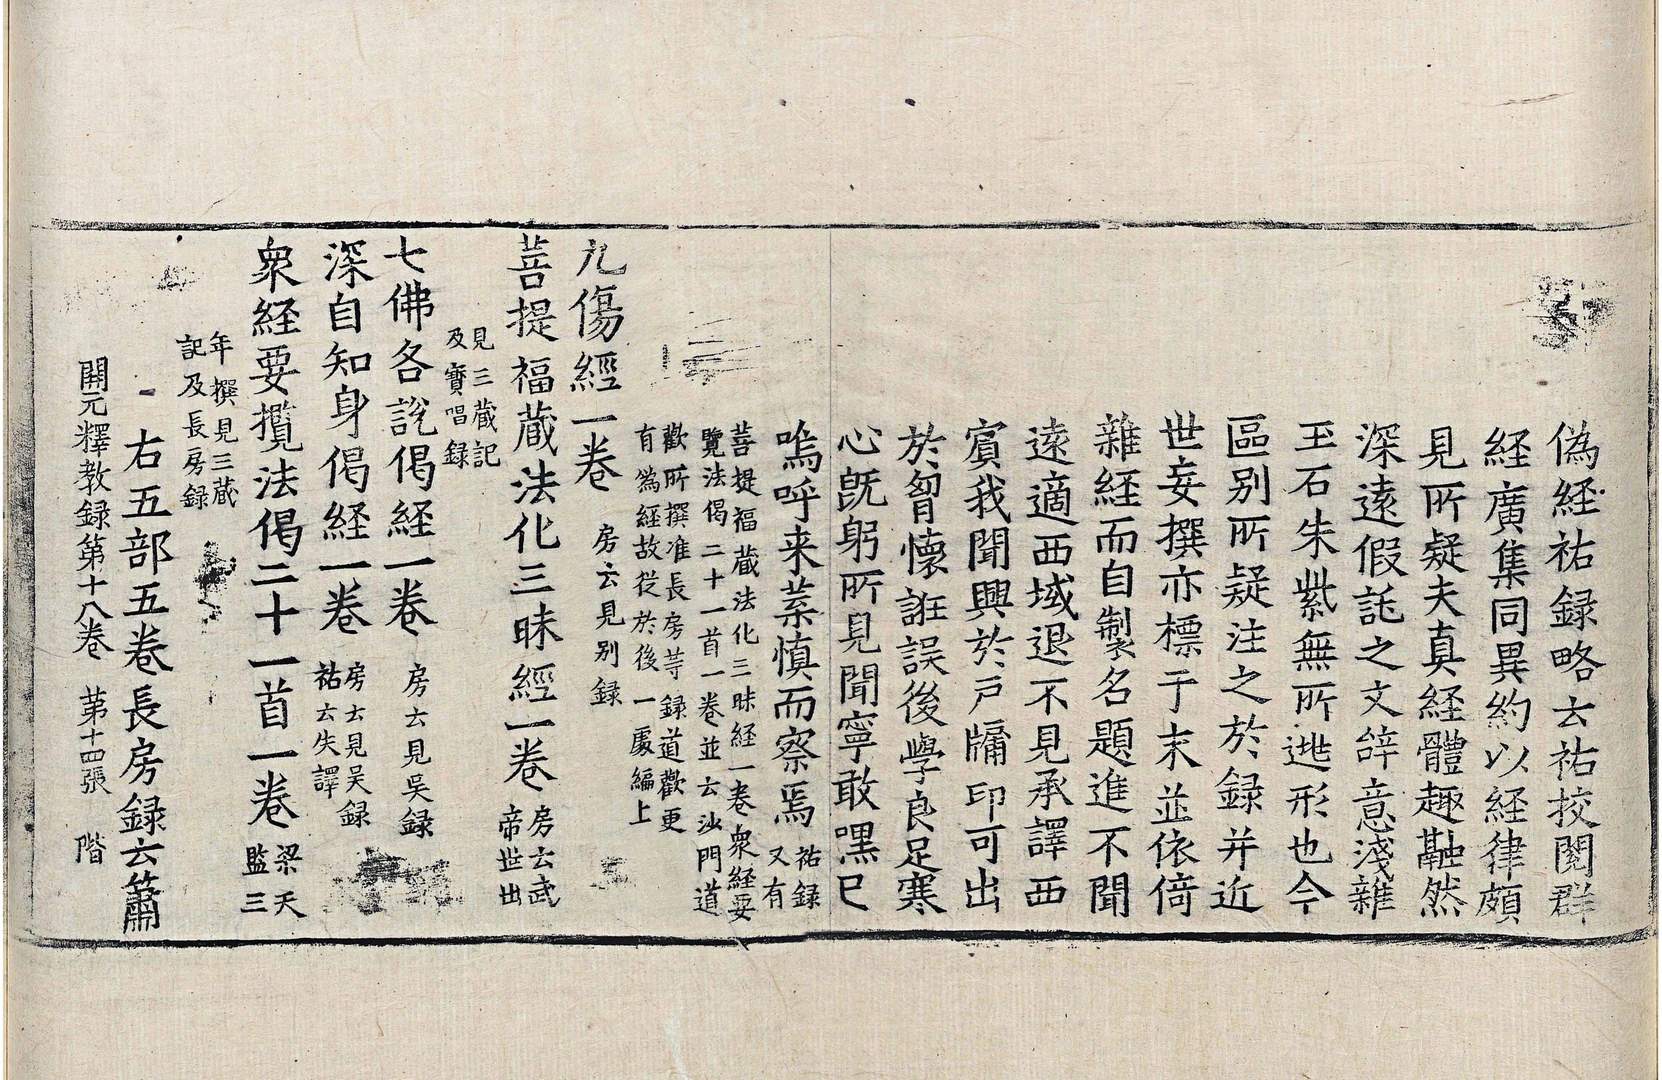 偽経祐録略云祐挍閱群
経廣集同異約以経律頗
見所疑夫真経體趣融然
深遠假託之文辝意淺雜
玉石朱紫無所逃形也今
區別所疑注之於録并近
世妄撰亦標于末並依倚
雜経而自製名題進不聞
遠適西域退不見承譯西
賓我聞興於戸牖印可出
於胷懷誑誤後學良足寒
心旣躬所見聞寧敢嘿已
嗚呼来葉慎而察焉 祐録
又有
菩提福蔵法化三昧経一巻衆経要
覽法偈二十一首一巻並云沙門道
歡所撰准長房等録道歡更
有爲経故從於後一處編上
九傷經一巻 房云見别録
菩提福蔵法化三昧經一巻 房云武
帝世出
見三蔵記
及寶唱録
七佛各説偈経一巻 房云見吴録
深自知身偈経一巻 房云見吴録
祐云失譯
衆経要攬法偈二十一首一巻 梁天
監三
年撰見三蔵
記及長房録
右五部五巻長房録云蕭
開元釋教録第十八巻 第十四張 階